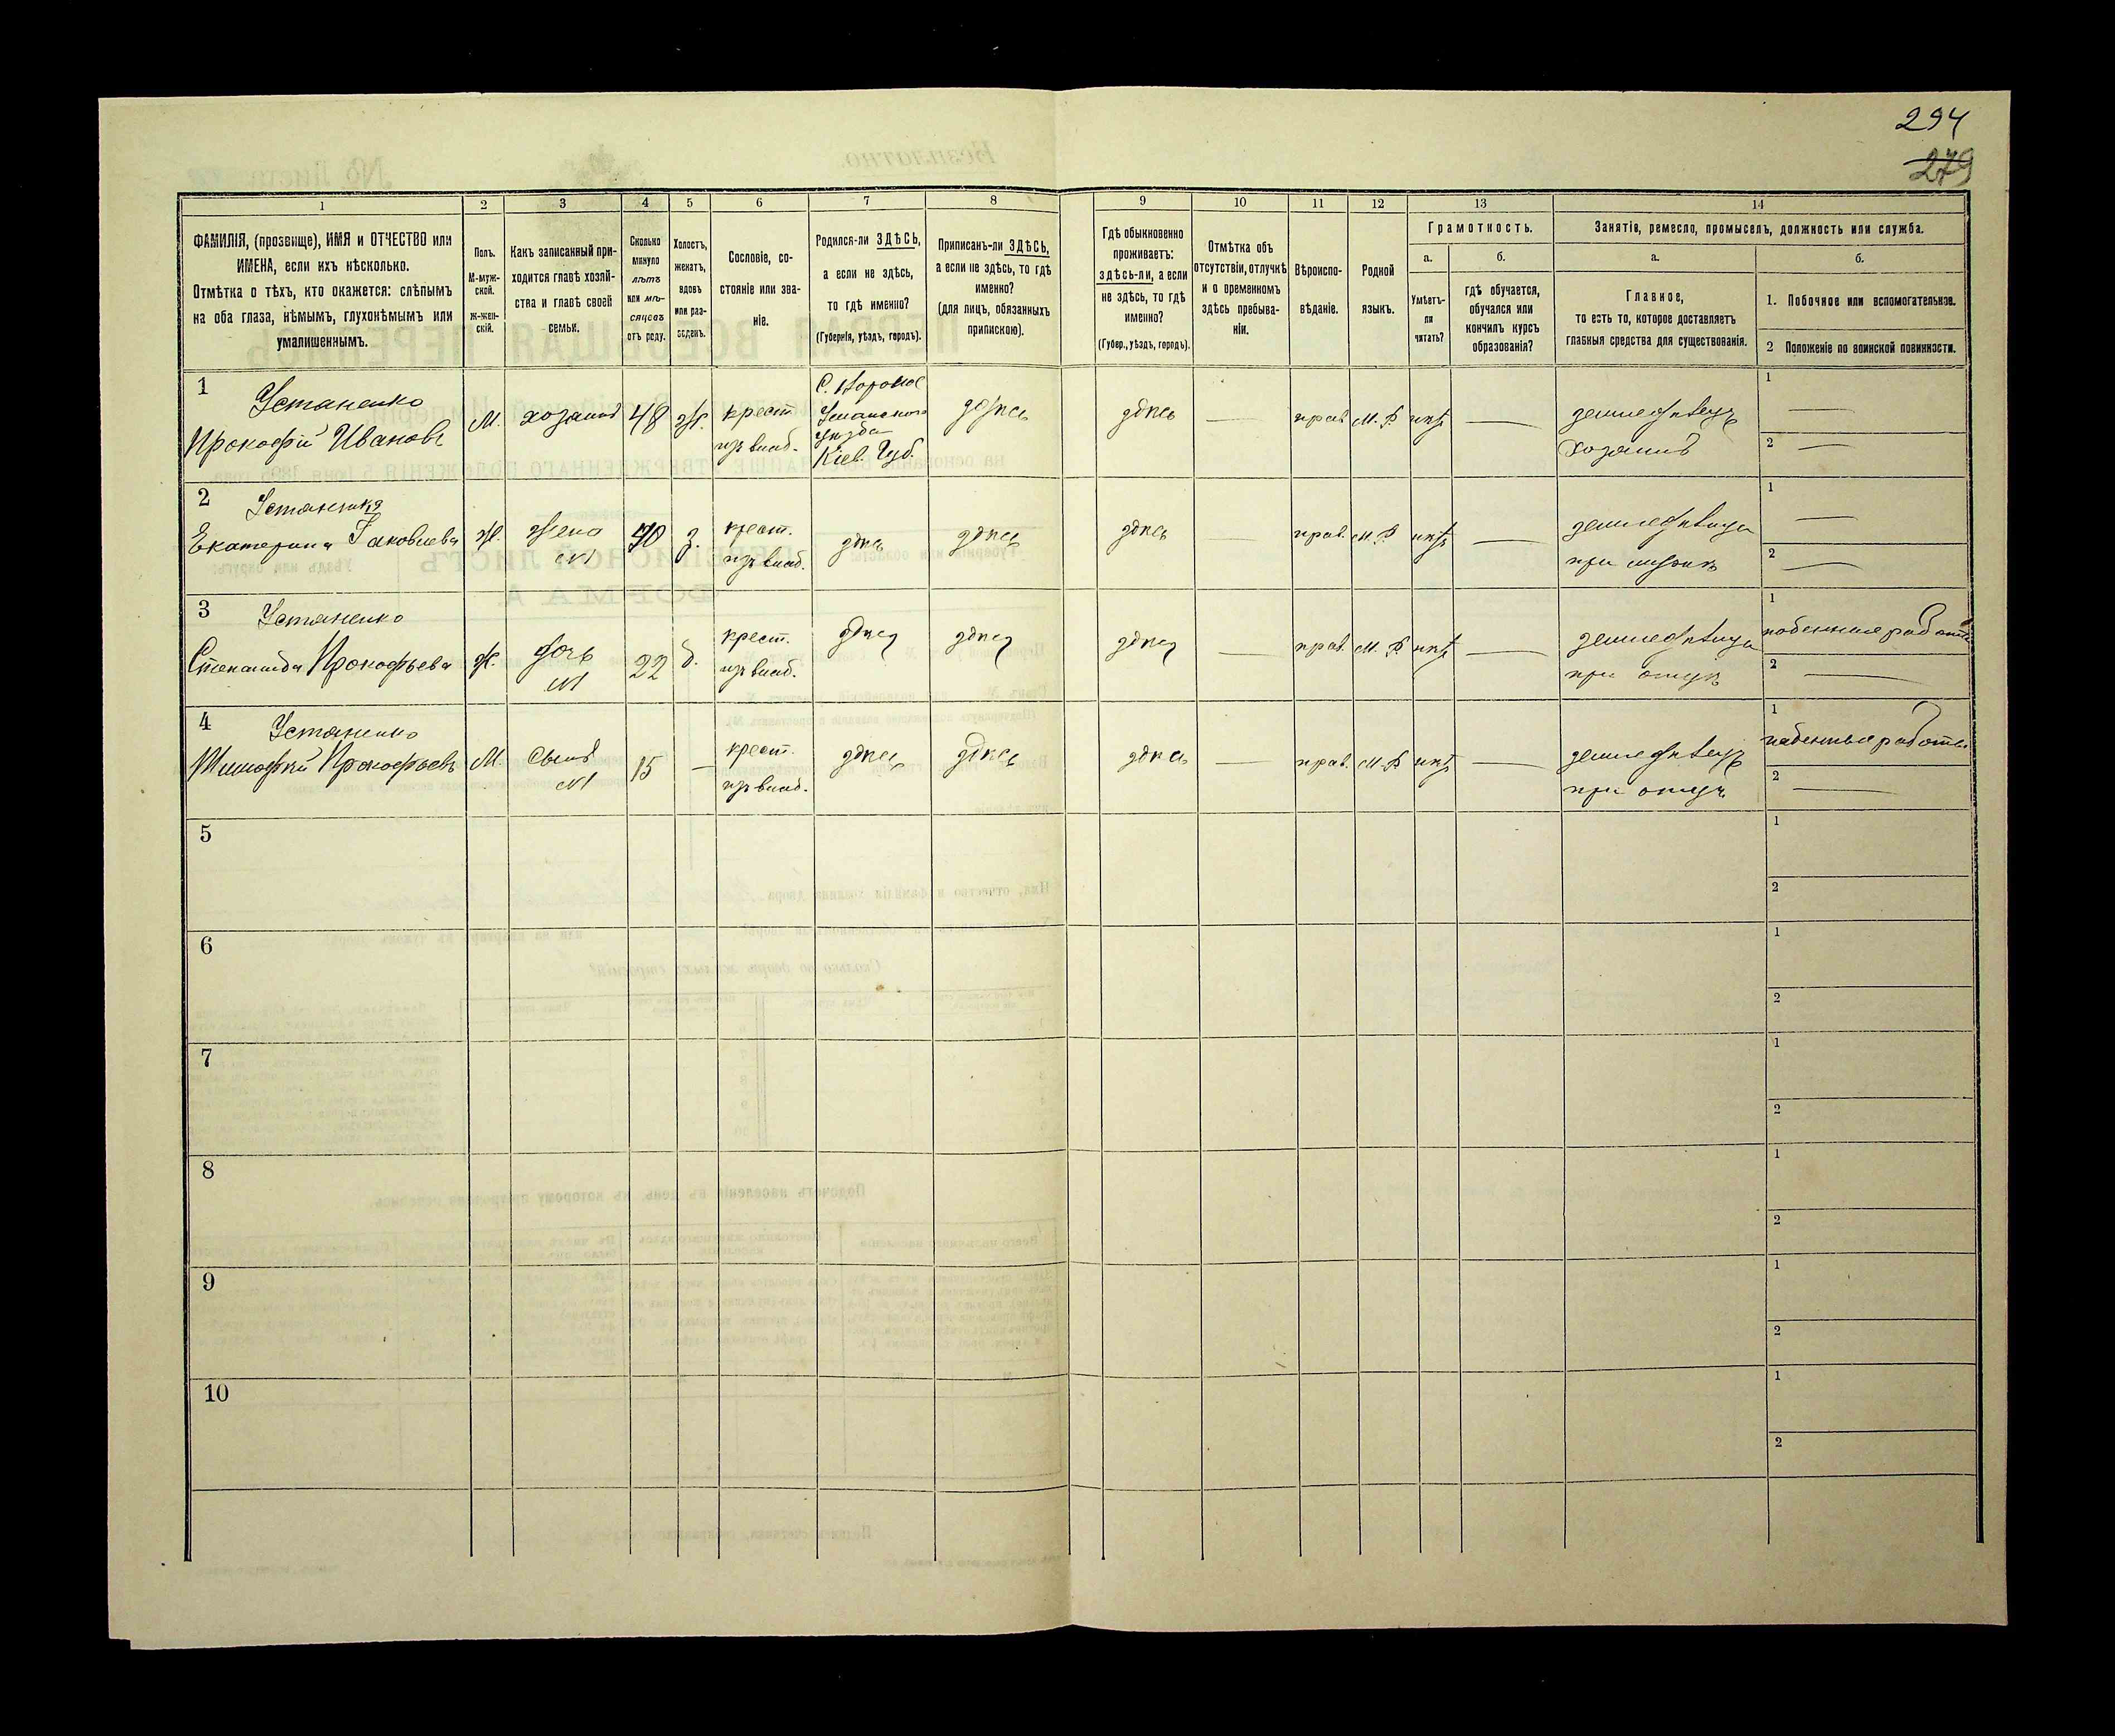 294
279
1
2
3
4
5
6
7
8
9
10
11
12
13
14
ФАМИЛІЯ, (прозвище), ИМЯ и ОТЧЕСТВО или
ИМЕНА, если ихъ нѣсколько.
Отмѣтка о тѣхъ, кто окажется: слѣпымъ
на оба глаза, нѣмымъ, глухонѣмымъ или
умалишеннымъ.
Полъ.
М-муж-
ской.
Ж-жен-
скій.
Какъ записанный при-
ходится главѣ хозяй-
ства и главѣ своей
семьи.
Сколько
минуло
лѣтъ
или мѣ-
сяцевъ
отъ роду.
Холостъ,
женатъ,
вдовъ
или раз-
веденъ.
Сословіе, со-
стояніе или зва-
ніе.
Родился-ли ЗДѢСЬ,
а если не здѣсь,
то гдѣ именно?
(Губернія, уѣздъ, городъ).
Приписанъ-ли ЗДѢСЬ,
а если не здѣсь, то гдѣ
именно?
(для лицъ, обязанныхъ
припискою).
Гдѣ обыкновенно
проживаетъ:
здѣсь-ли, а если
не здѣсь, то гдѣ
именно?
(Губер., уѣздъ, городъ).
Отмѣтка объ
отсутствіи, отлучкѣ
и о временномъ
здѣсь пребыва-
ніи.
Вѣроиспо-
вѣданіе.
Родной
языкъ.
Грамотность.
а.
Умѣетъ-
ли
читать?
б.
гдѣ обучается,
обучался или
кончилъ курсъ
образованія?
Занятіе, ремесло, промыселъ, должность или служба.
а.
Главное,
то есть то, которое доставляетъ
главныя средства для существованія.
б.
1. Побочное или вспомогательное.
2 Положеніе по воинской повинности.
1
Устаненко
Прокофій Ивановъ
М.
хозяинъ
48
ж.
крест.
изъ влад.
Уманского
уѣзда
Кіев. Губ.
здѣсь
здѣсь
—
прав.
М. Р.
нѣтъ
—
земледѣлецъ
хозяинъ
1 —
2 —
2
Устаненко
Екатерина Яковлева
Ж.
жена
№1
40
з.
крест.
изъ влад.
здѣсь
здѣсь
здѣсь
—
прав.
М. Р.
нѣтъ
—
земледѣлица
при мужѣ
1 —
2 —
3
Устаненко
Степанида Прокофьева
Ж.
дочь
№1
22
д.
крест.
изъ влад.
здѣсь
здѣсь
здѣсь
—
прав.
М. Р.
нѣтъ
—
земледѣлица
при отцѣ
1
поденные работы
2 —
4
Устаненко
Тимофей Прокофьевъ
М.
сынъ
№1
15
—
крест.
изъ влад.
здѣсь
здѣсь
здѣсь
—
прав.
М. Р.
нѣтъ
—
земледѣлецъ
при отцѣ
1
поденные работы
2 —
5
1
2
6
1
2
7
1
2
8
1
2
9
1
2
10
1
2